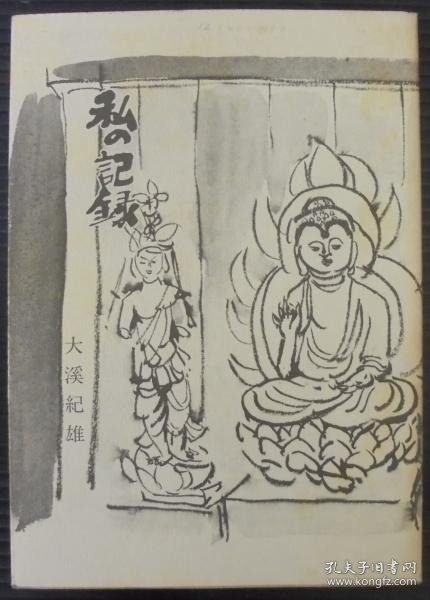 私の記録
大溪紀雄
孔夫子旧书网
www.kongfz.com